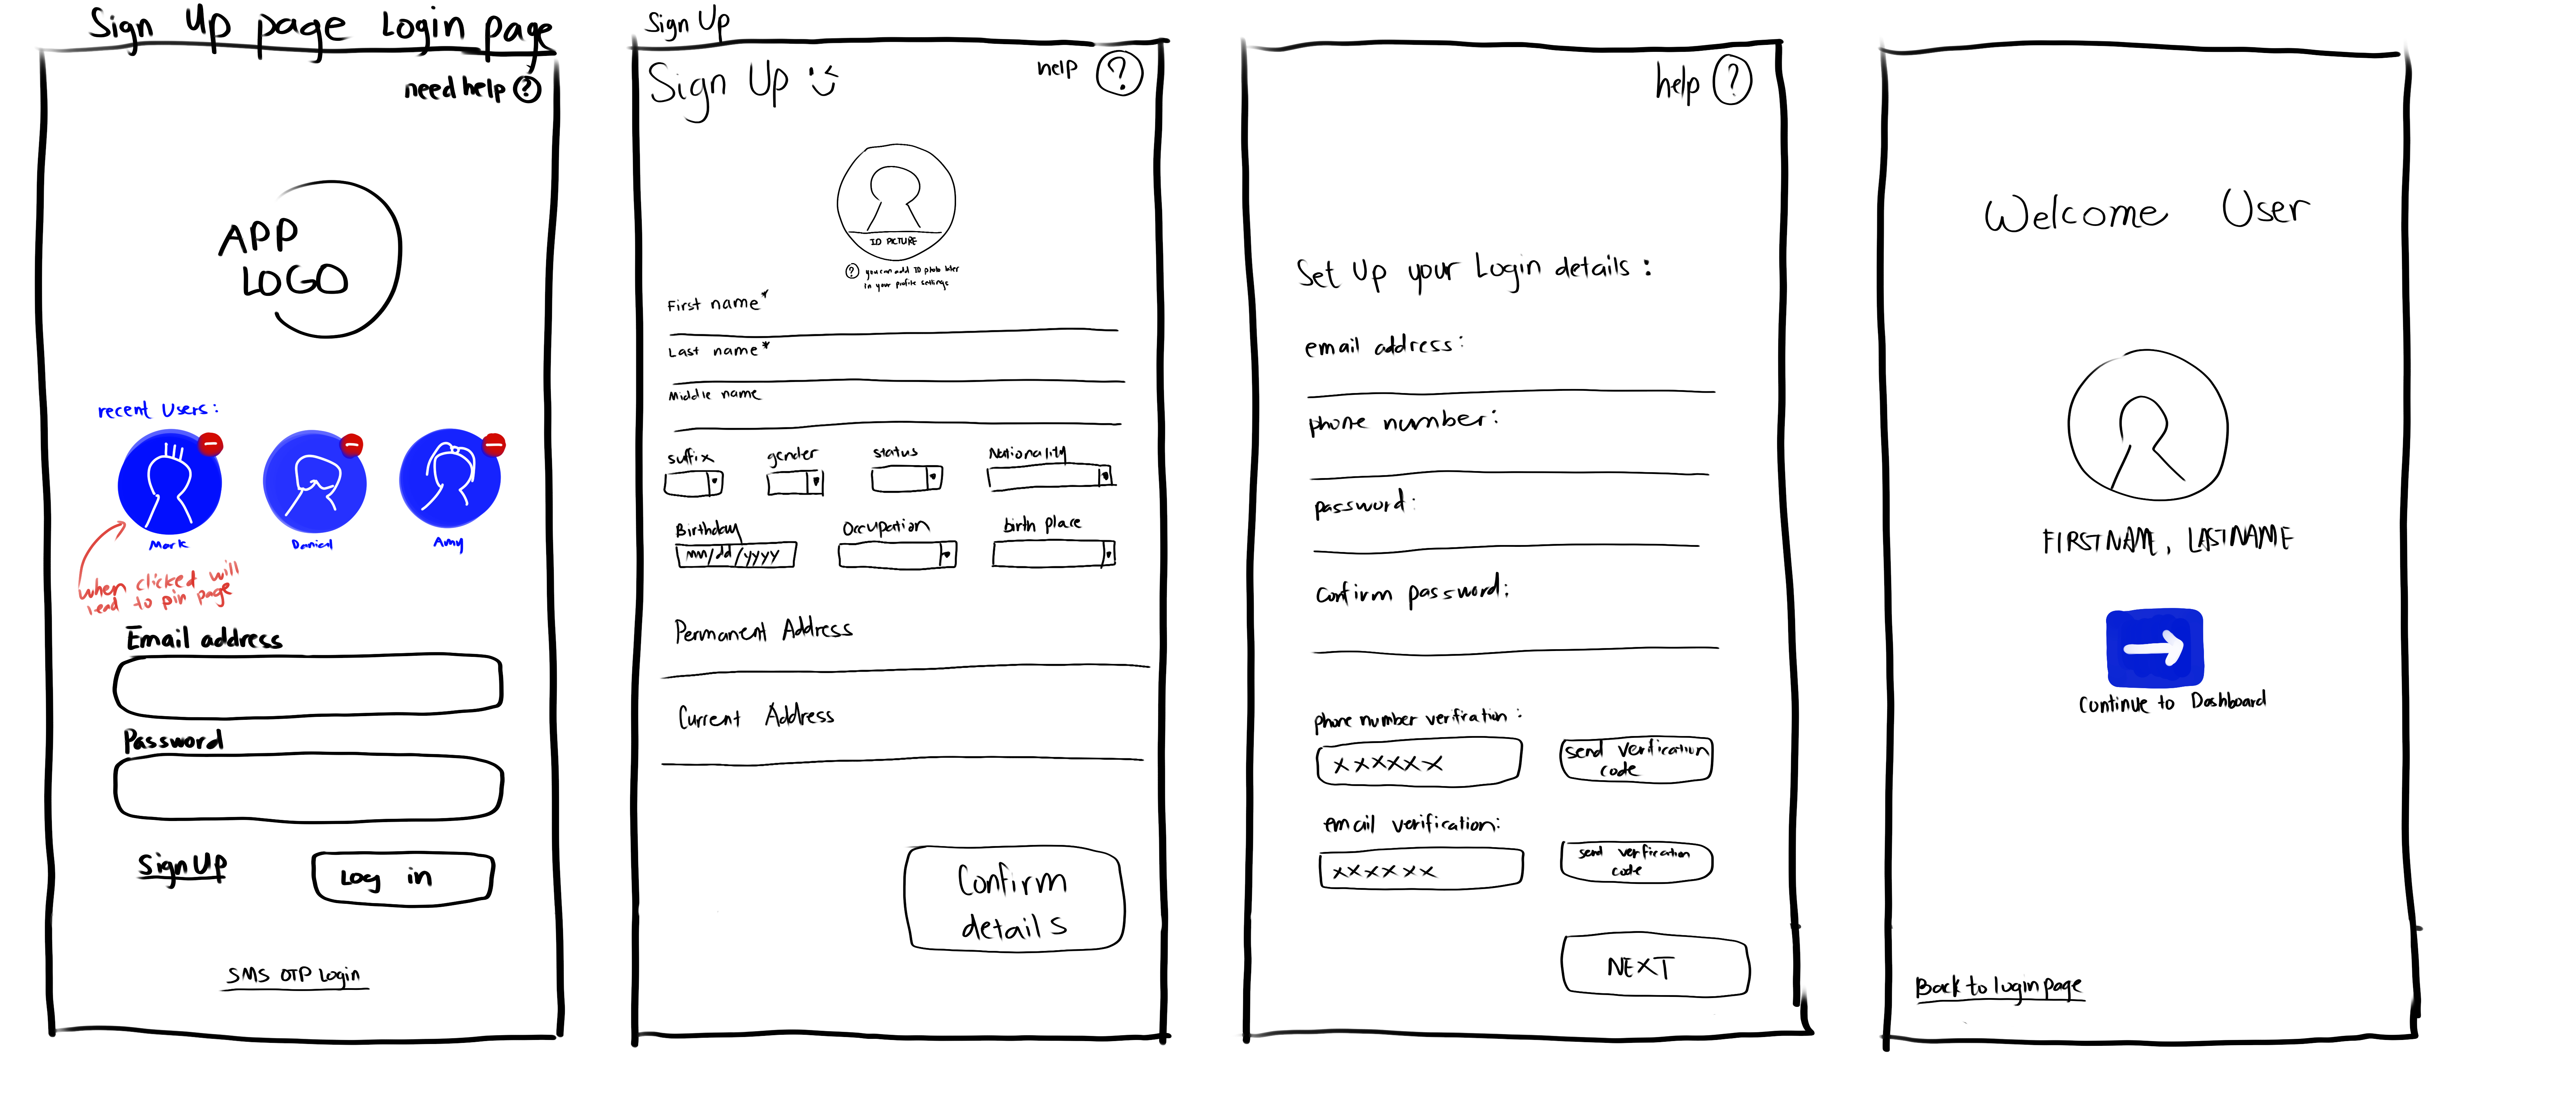 Sign Up page Login page
need help ?
APP
LOGO
recent Users:
Mark
Daniel
Amy
when clicked will
lead to pin page
Email address
Password
Sign Up
Log in
SMS OTP Login
Sign Up
Sign Up
help ?
ID PICTURE
? you can add ID photo later
in your profile settings
First name*
Last name*
Middle name
suffix
gender
status
Nationality
Birthday
Occupation
birth place
mm/dd/yyyy
Permanent Address
Current Address
Confirm
details
help ?
Set Up your Login details:
email address:
phone number:
password:
confirm password:
phone number verifiration:
xxxxxx
send verification
code
email verification:
xxxxxx
send verfication
code
NEXT
Welcome User
FIRSTNAME, LASTNAME
Continue to Dashboard
Back to login page